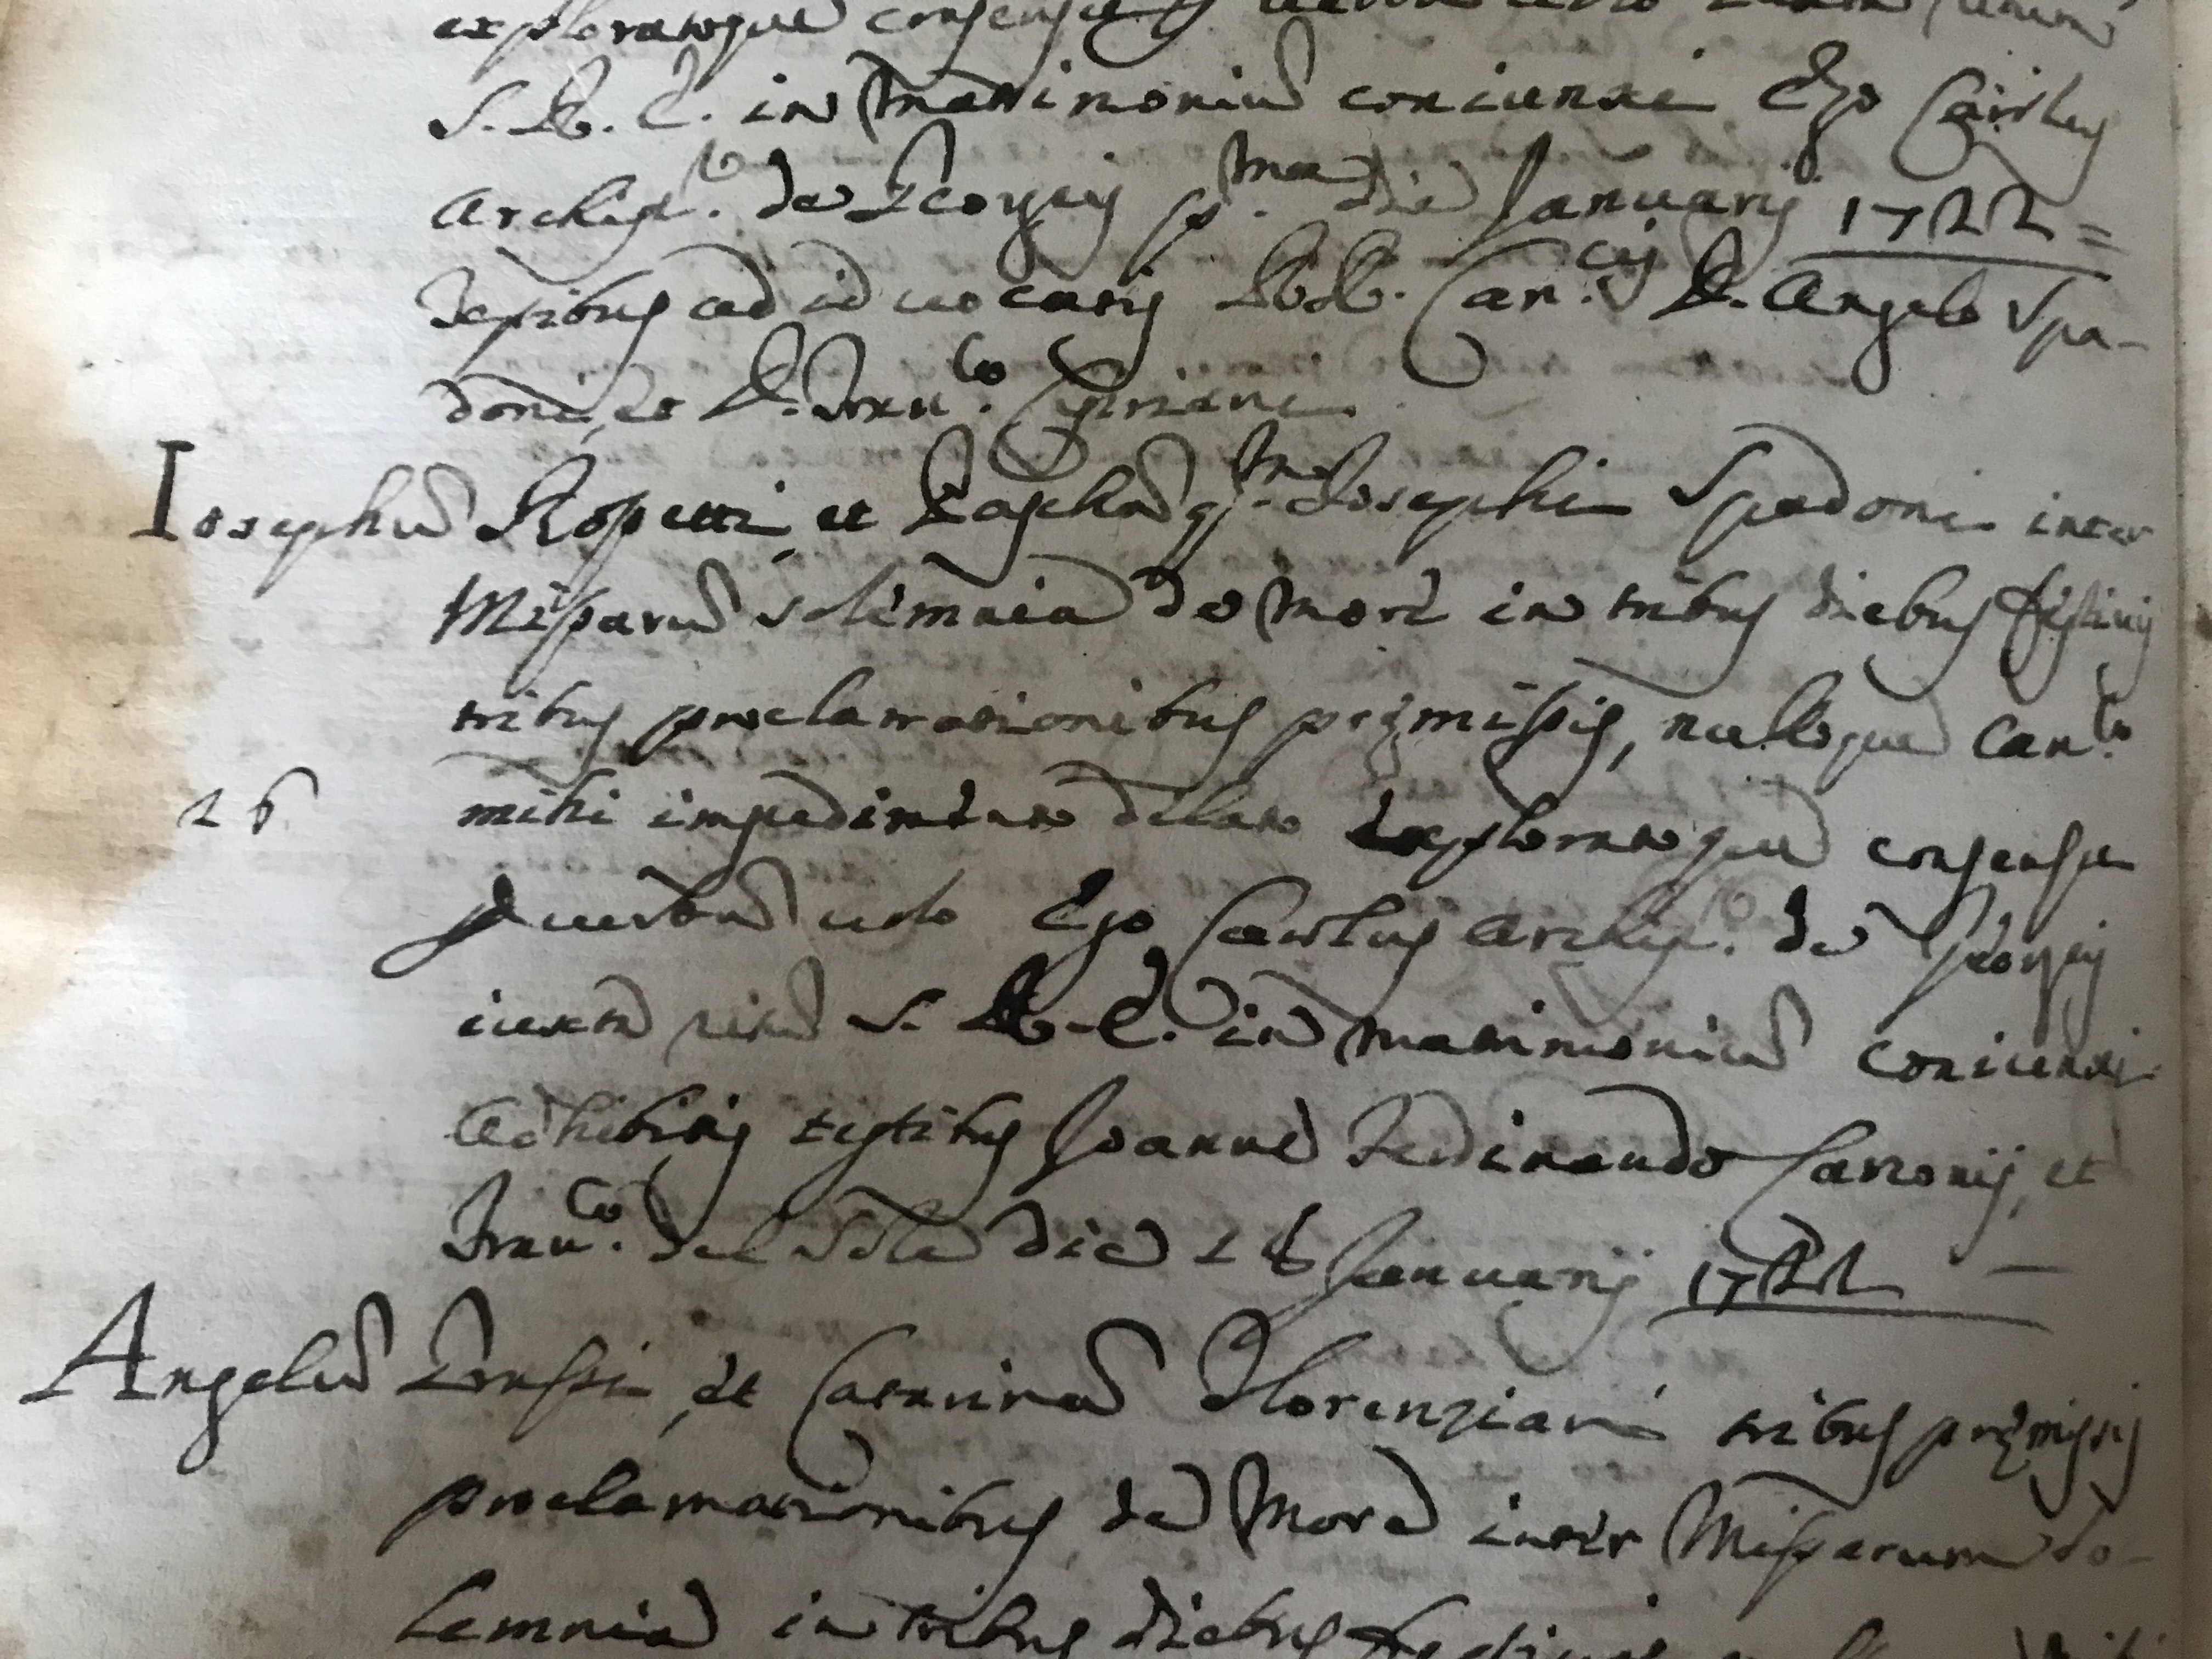 exploratoque consensu
S. R. E. in Matrimoniũ coniunxi Ego Carolus
Archip.r de p.ma die Januarij 1722 =
Testibus ad id vocatis RR. Can.cis D. Angelo Spa-
doni, et D. Fran.co Cipriani.
Iosephũ Rossetti, et Paschã q.m Josephi Spadoni inter
Missarũ solemnia de More in tribus diebus festivis
tribus proclamationibus pręmissis, nulloque Can.co
26 mihi impedimento delato exploratoque consensu
verbũ Ego Carolus Archip.r de
iuxta ritũ S. R. E. in matrimoniũ coniunxi
adhibitis testibus Joanne Ferdinando et
Fran.co del Sole die 28 Januarij 1722 —
Angelũ et Catarinã Florenziani tribus pręmissis
proclamationibus de More inter Missarum so-
lemnia in tribus diebus festivis